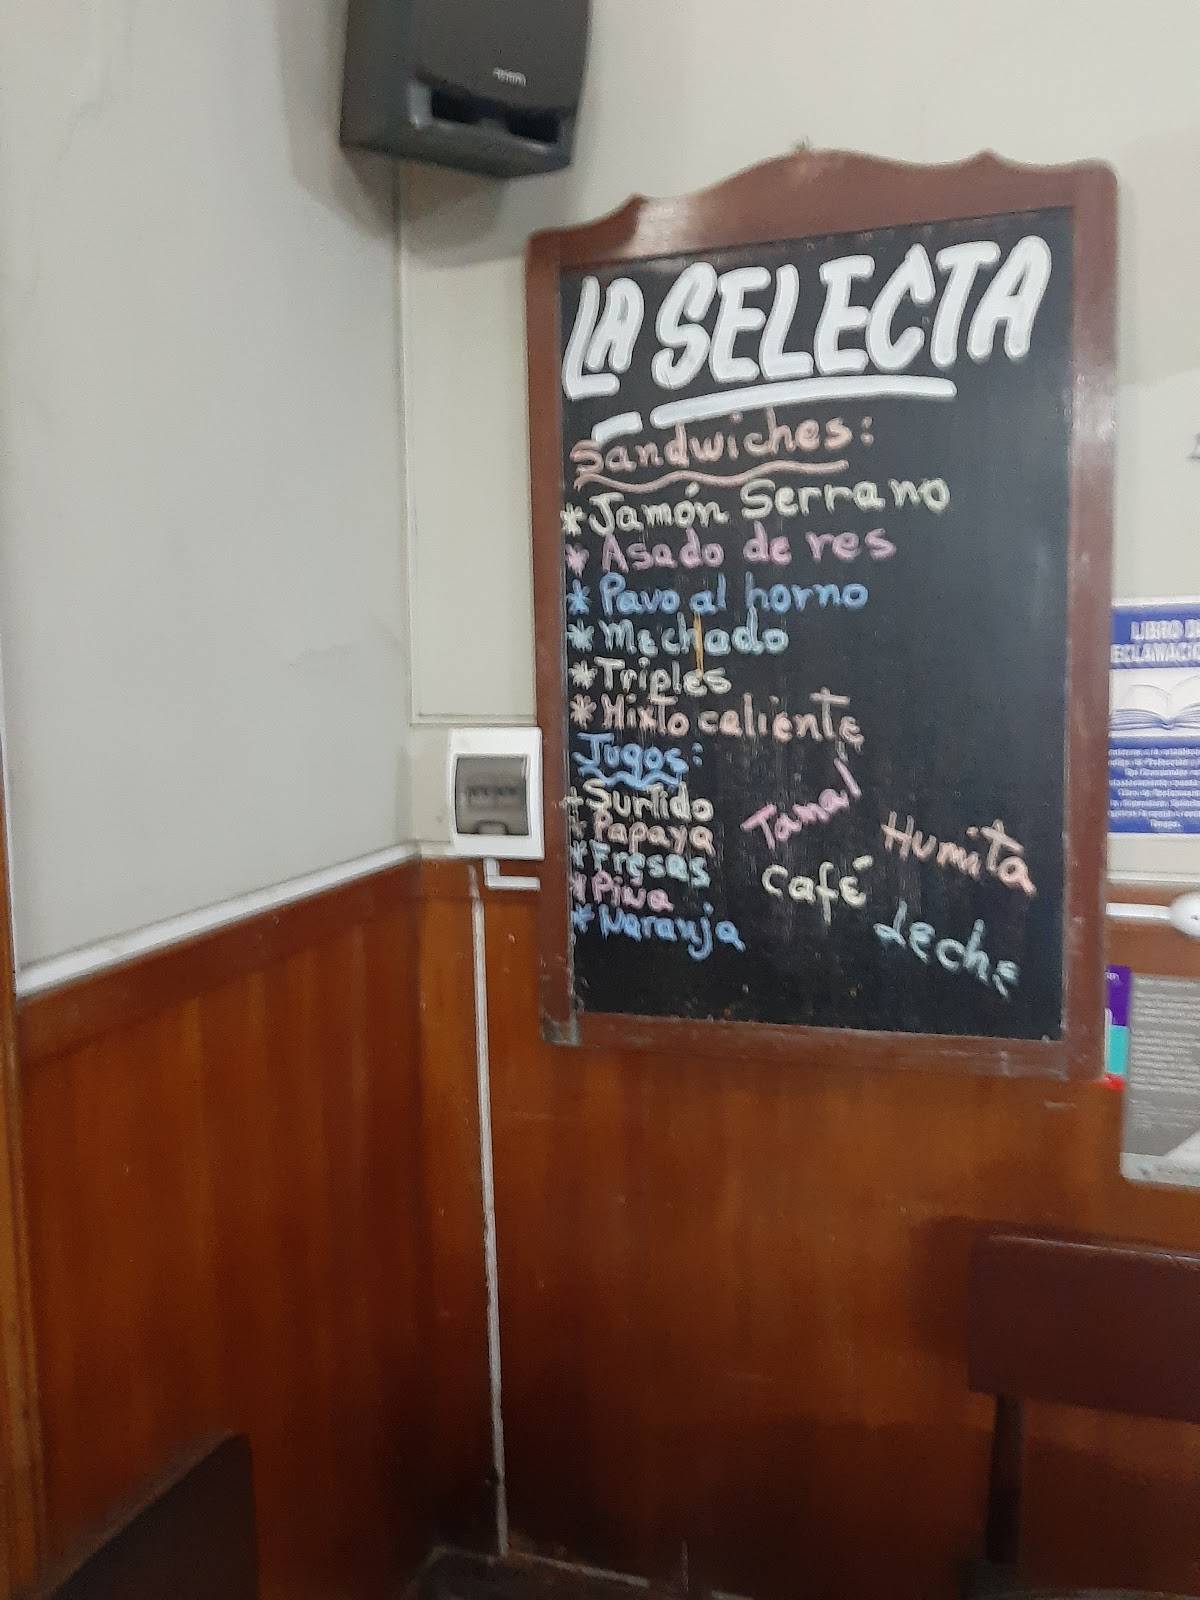 LA SELECTA
Sandwiches:
* Jamón Serrano
* Asado de res
* Pavo al horno
* Mechado
* Triples
* Mixto caliente
Jugos:
+ Surtido
* Papaya
* Fresas
* Piña
* Naranja
Tamal
Café
Humita
Leche
LIBRO DE